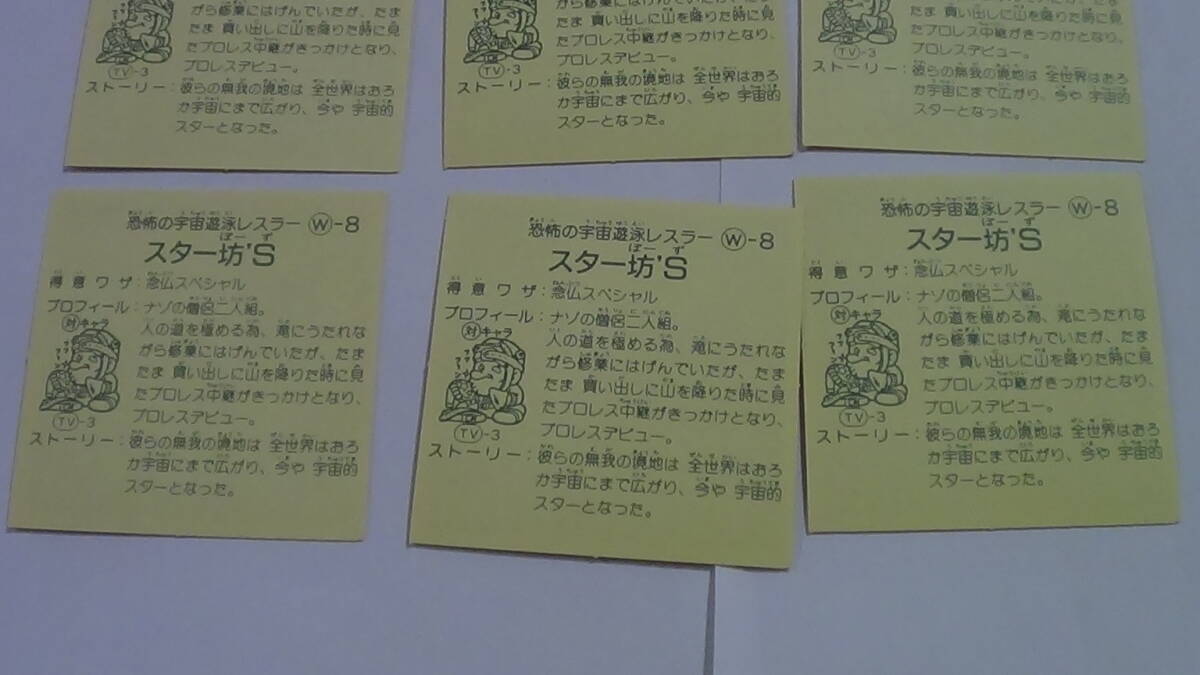 がら修業にはげんでいたが、たま
たま 買い出しに山を降りた時に見
たプロレス中継がきっかけとなり、
プロレスデビュー。
TV-3
ストーリー：彼らの無我の境地は 全世界はおろ
か宇宙にまで広がり、今や 宇宙的
スターとなった。
がら修業にはげんでいたが、たま
たま 買い出しに山を降りた時に見
たプロレス中継がきっかけとなり、
プロレスデビュー。
TV-3
ストーリー：彼らの無我の境地は 全世界はおろ
か宇宙にまで広がり、今や 宇宙的
スターとなった。
たま 買い出しに山を降りた時に見
たプロレス中継がきっかけとなり、
プロレスデビュー。
TV-3
ストーリー：彼らの無我の境地は 全世界はおろ
か宇宙にまで広がり、今や 宇宙的
スターとなった。
恐怖の宇宙遊泳レスラー W-8
スター坊'S
得意ワザ：念仏スペシャル
プロフィール：ナゾの僧侶二人組。
対キャラ
人の道を極める為、滝にうたれな
がら修業にはげんでいたが、たま
たま 買い出しに山を降りた時に見
たプロレス中継がきっかけとなり、
プロレスデビュー。
TV-3
ストーリー：彼らの無我の境地は 全世界はおろ
か宇宙にまで広がり、今や 宇宙的
スターとなった。
恐怖の宇宙遊泳レスラー W-8
スター坊'S
得意ワザ：念仏スペシャル
プロフィール：ナゾの僧侶二人組。
対キャラ
人の道を極める為、滝にうたれな
がら修業にはげんでいたが、たま
たま 買い出しに山を降りた時に見
たプロレス中継がきっかけとなり、
プロレスデビュー。
TV-3
ストーリー：彼らの無我の境地は 全世界はおろ
か宇宙にまで広がり、今や 宇宙的
スターとなった。
恐怖の宇宙遊泳レスラー W-8
スター坊'S
得意ワザ：念仏スペシャル
プロフィール：ナゾの僧侶二人組。
対キャラ
人の道を極める為、滝にうたれな
がら修業にはげんでいたが、たま
たま 買い出しに山を降りた時に見
たプロレス中継がきっかけとなり、
プロレスデビュー。
TV-3
ストーリー：彼らの無我の境地は 全世界はおろ
か宇宙にまで広がり、今や 宇宙的
スターとなった。